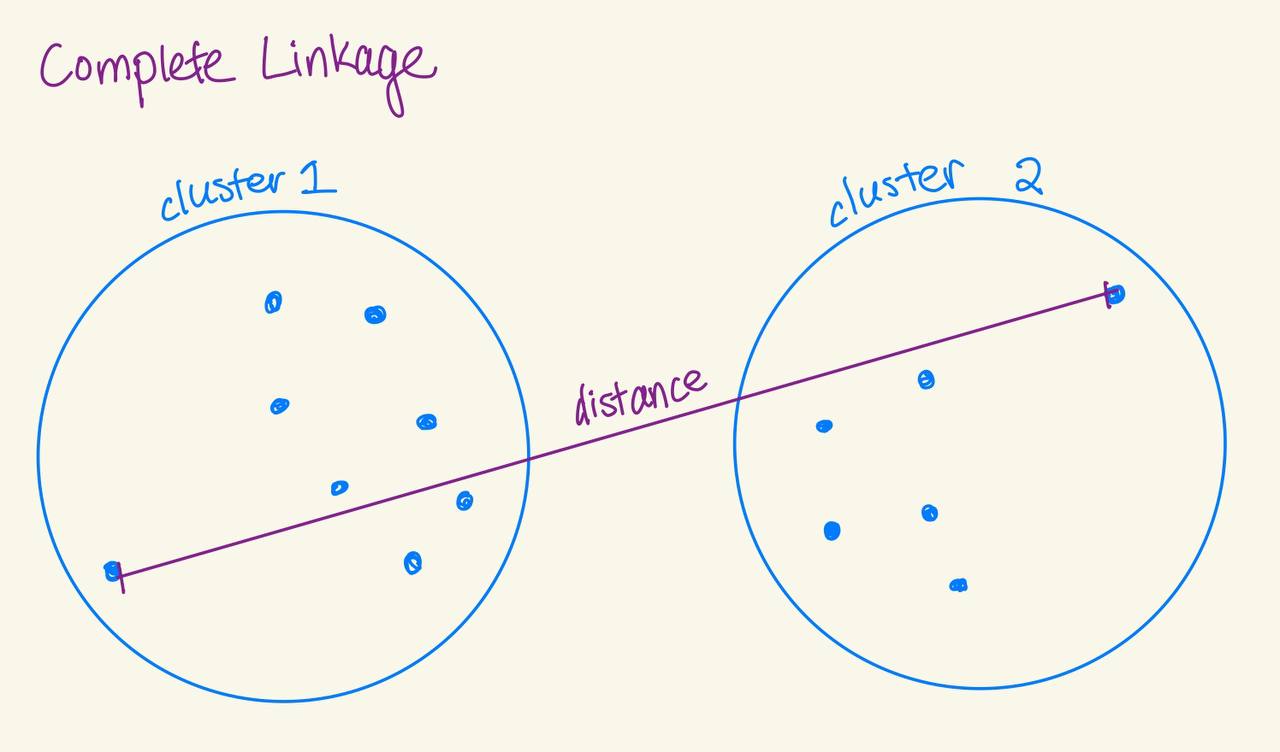 Complete Linkage
cluster 1
cluster 2
distance